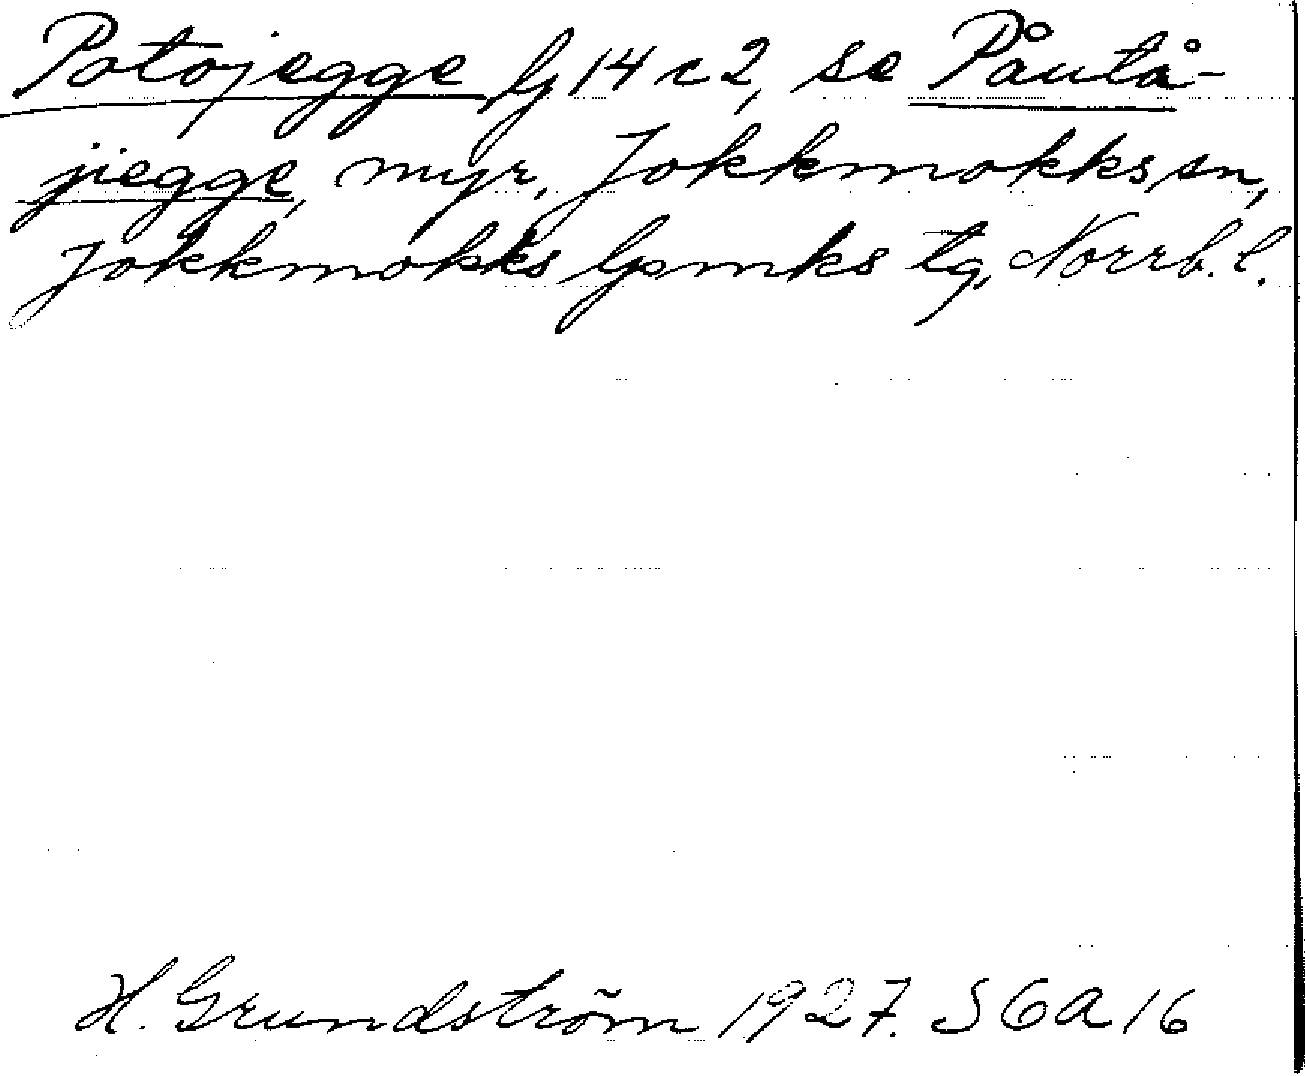 Potojegge fj 14 c 2, se Påutå-
jiegge, myr, Jokkmokks sn,
Jokkmokks lpmks tg, Norrb. l.
H. Grundström 1927. S G A 16